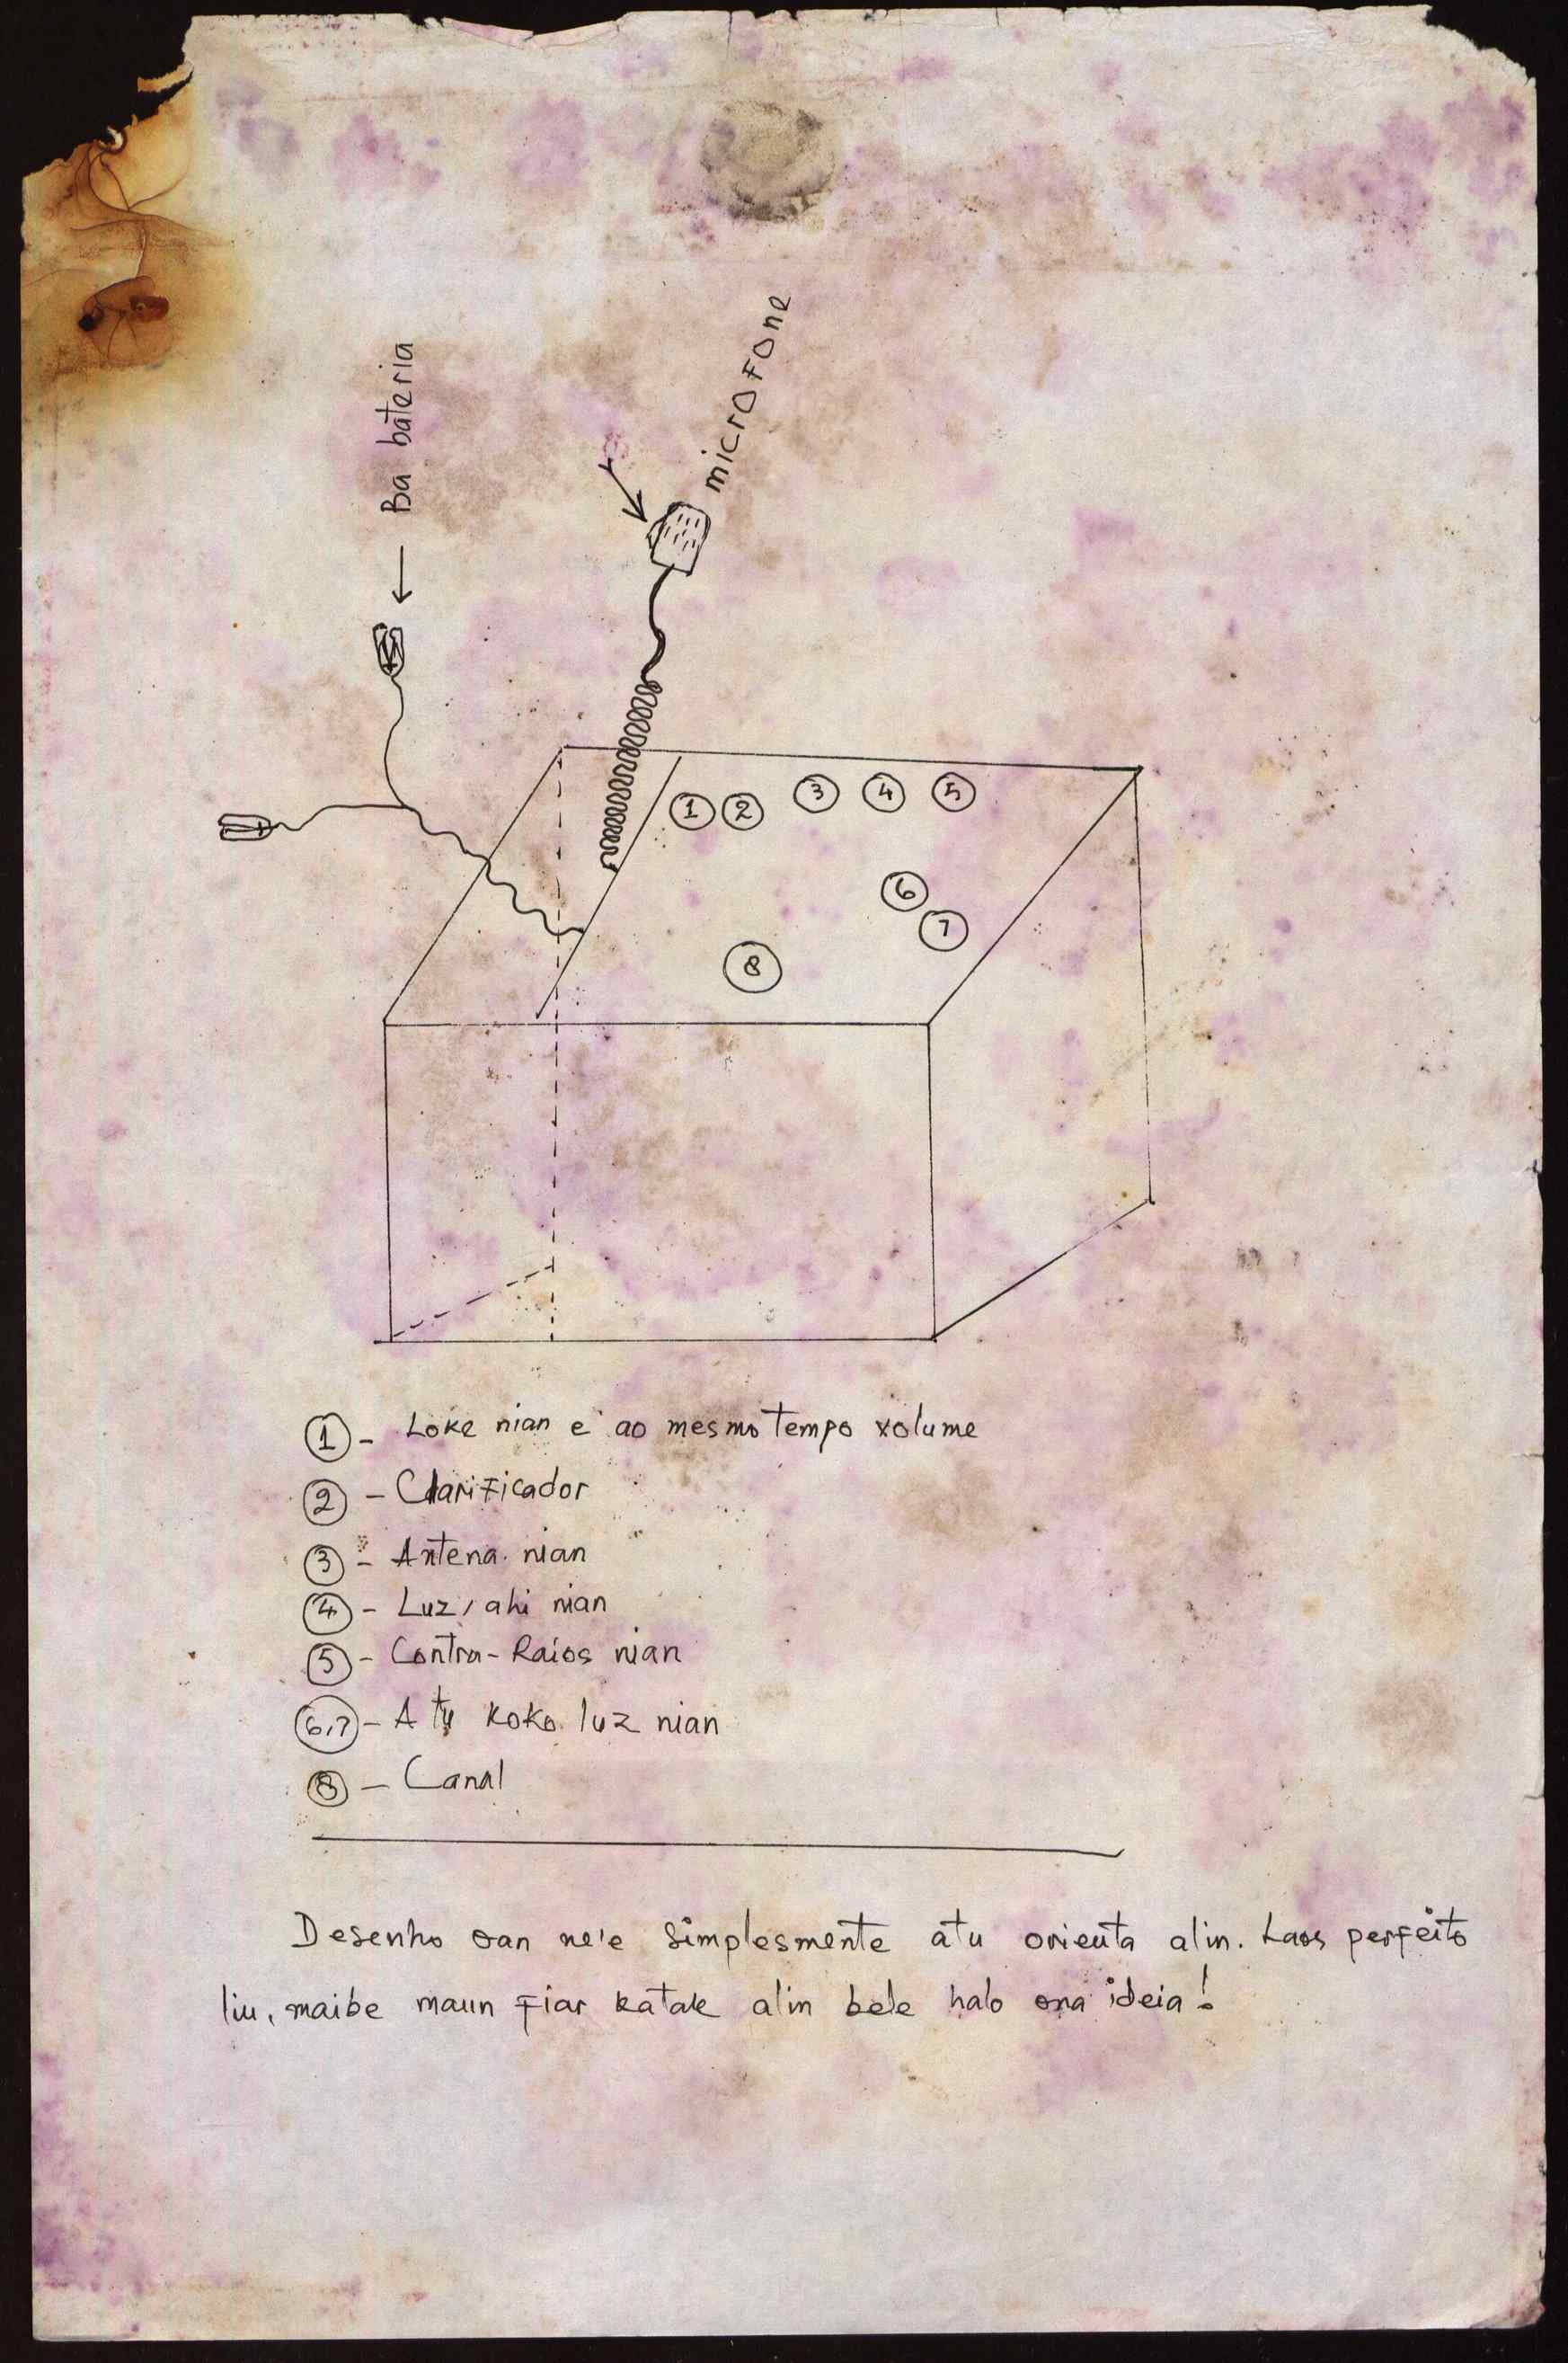 Ba bateria
microfone
1 2 3 4 5
6
7
8
1 - Loke nian e ao mesmo tempo volume
2 - Clarificador
3 - Antena nian
4 - Luz, ahi nian
5 - Contra-Raios nian
6,7 - Atu koko luz nian
8 - Canal
Desenho oan ne'e simplesmente atu orienta alin. Laos perfeito
liu, maibe maun fiar katak alin bele halo ona ideia!